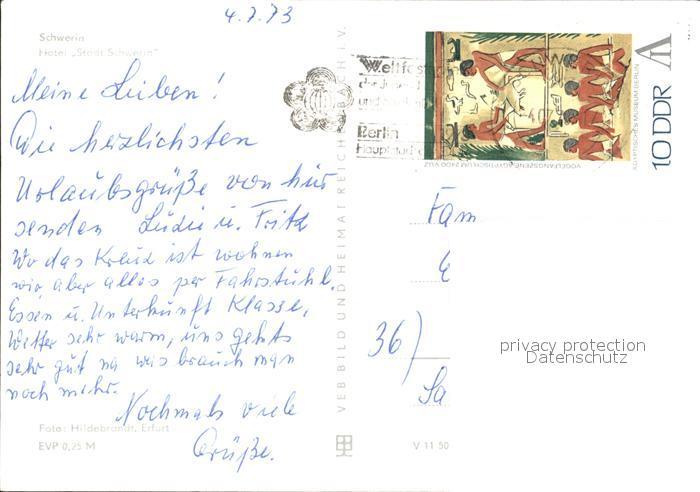 4.7.73
Schwerin
Hotel „Stadt Schwerin"
Meine Lieben!
Die herzlichsten
Urlaubsgrüße von hier
senden Lüdie u. Fritz
Wo das Kreuz ist wohnen
wir aber alles per Fahrstuhl.
Essen u. Unterkunft Klasse,
Wetter sehr warm, uns gehts
sehr gut na was brauch man
noch mehr.
Nochmals viele
Grüße.
Foto: Hildebrandt, Erfurt
EVP 0,25 M
VEB BILD UND HEIMAT REICHENBACH I. V.
V 11 50
Weltfests
der Jugend
und
Berlin
Hauptstadt
VOGELFANGSZENE
10 DDR
ÄGYPTISCHES MUSEUM BERLIN
Fam
36)
Sa
privacy protection
Datenschutz